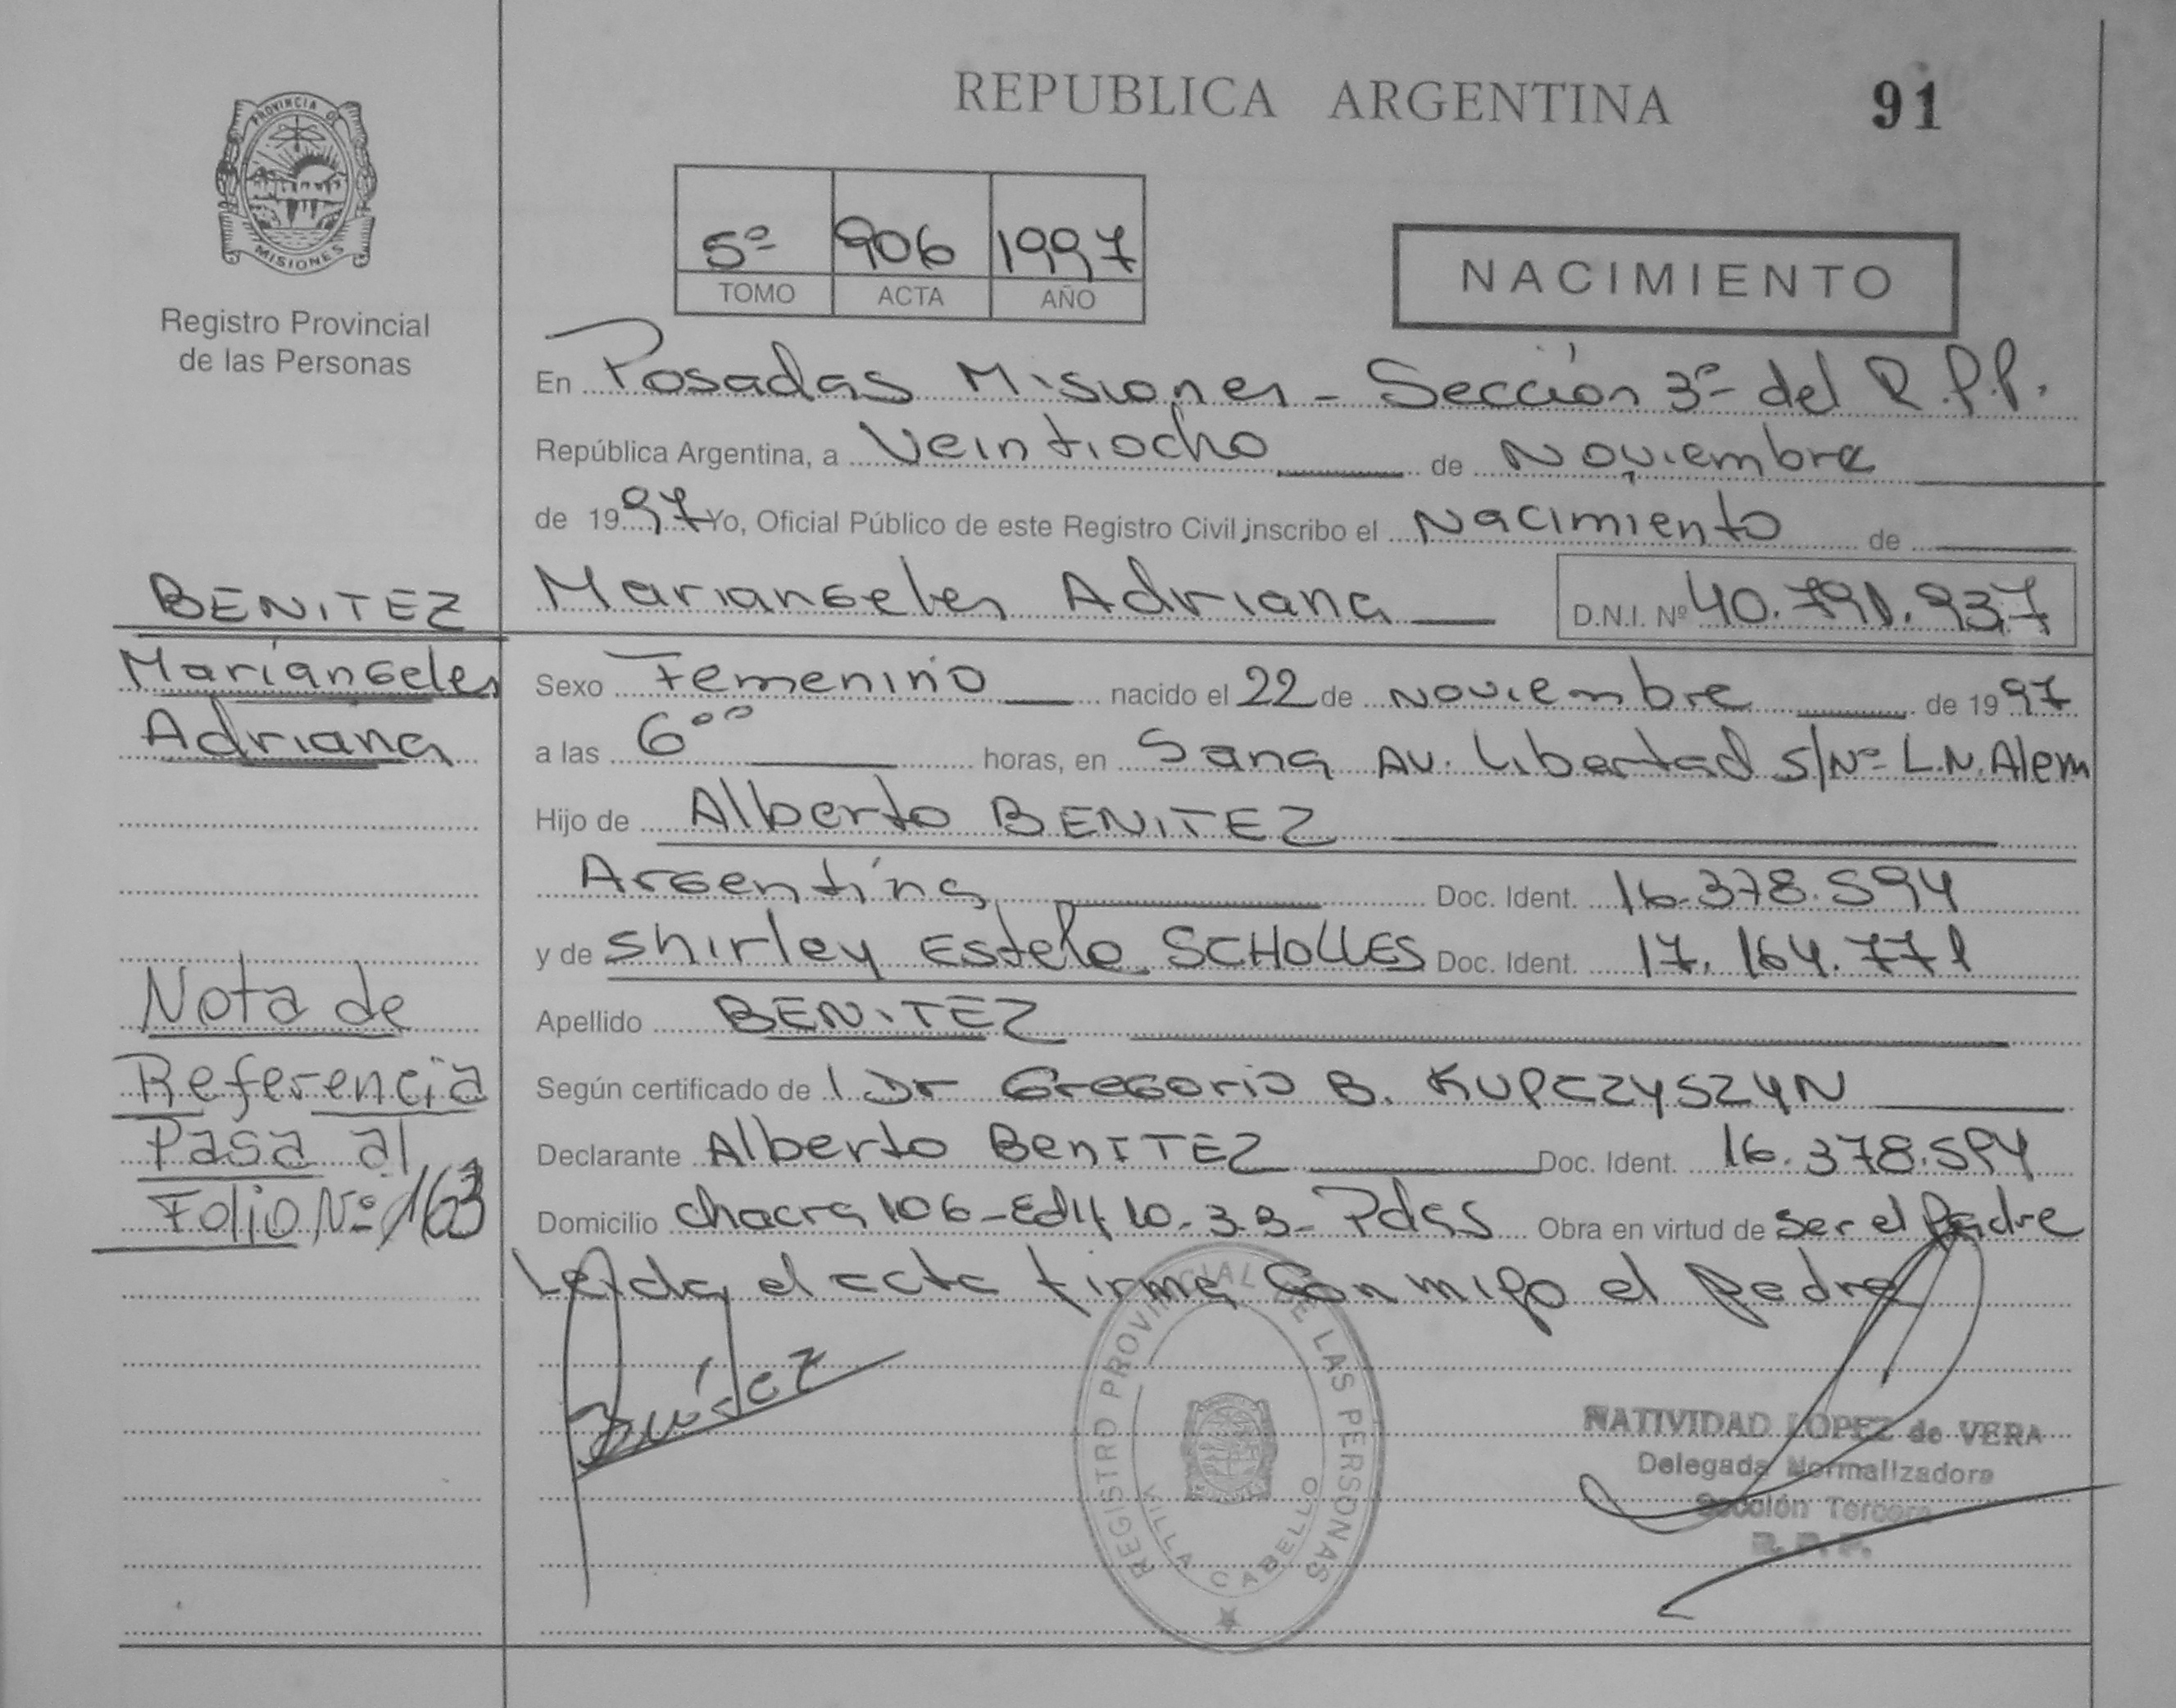 REPUBLICA ARGENTINA
91
PROVINCIA DE
MISIONES
Registro Provincial
de las Personas
5º 906 1997
TOMO ACTA AÑO
NACIMIENTO
En Posadas Misiones - Sección 3º del R.P.P.
República Argentina, a Veintiocho de Noviembre
de 1997 Yo, Oficial Público de este Registro Civil inscribo el Nacimiento de
Mariangeles Adriana D.N.I. Nº 40.791.937
BENITEZ
Mariángeles
Adriana
Sexo Femenino nacido el 22 de Noviembre de 1997
a las 6⁰⁰ horas, en Sana Av. Libertad S/Nº L.N. Alem
Hijo de Alberto BENITEZ
Argentina Doc. Ident. 16.378.594
y de Shirley Estela SCHOLLES Doc. Ident. 17.164.771
Apellido BENITEZ
Según certificado de l Dr Gregorio B. KUPCZYSZYN
Declarante Alberto BenITEZ Doc. Ident. 16.378.594
Domicilio Chacra 106-Edif 10-3.B- Pdas Obra en virtud de Ser el Padre
Leída el acta firma Conmigo el padre
Nota de
Referencia
Pasa al
Folio Nº 163
REGISTRO PROVINCIAL DE LAS PERSONAS
VILLA CABELLO
NATIVIDAD LOPEZ de VERA
Delegada Normalizadora
Sección Tercera
R. P. P.